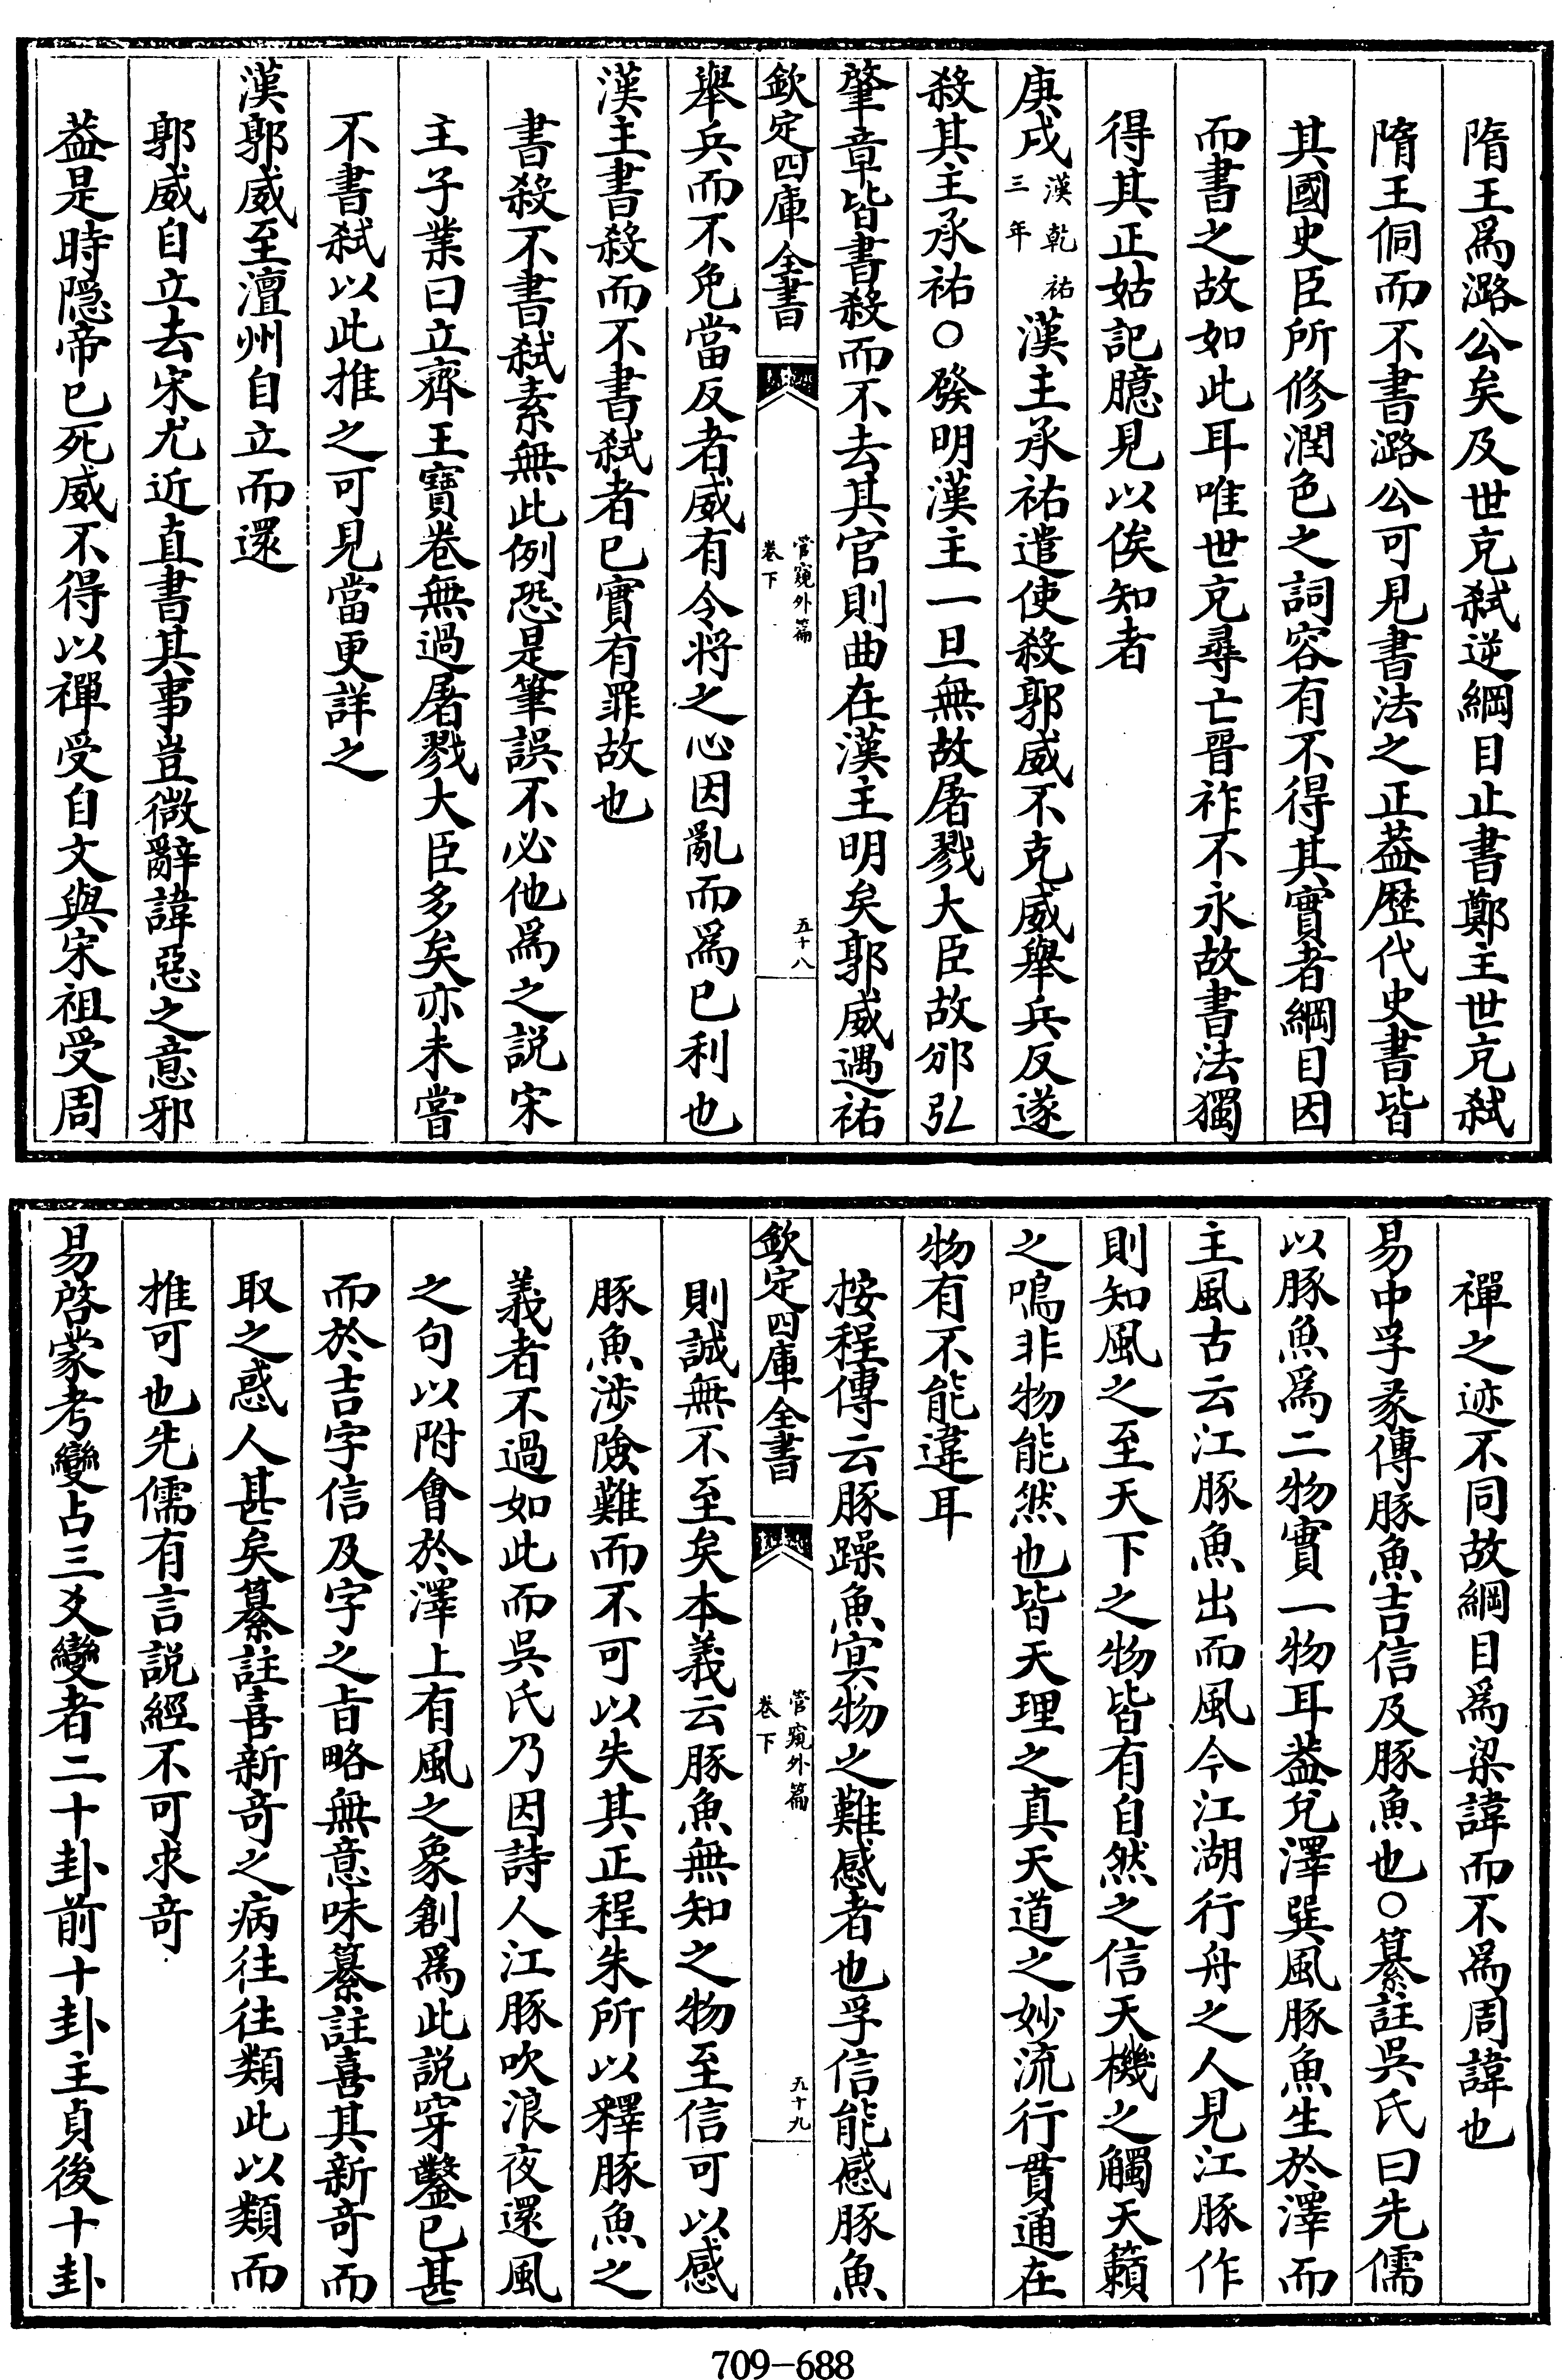 隋王爲潞公矣及世充弑逆綱目止書鄭主世充弑
隋王侗而不書潞公可見書法之正葢歴代史書皆
其國史臣所修潤色之詞容有不得其實者綱目因
而書之故如此耳唯世充尋亡晉祚不永故書法獨
得其正姑記臆見以俟知者
庚戌漢乾祐三年漢主承祐遣使殺郭威不克威舉兵反遂
殺其主承祐○發明漢主一旦無故屠戮大臣故邠弘
肇章皆書殺而不去其官則曲在漢主明矣郭威遇祐
欽定四庫全書
管窺外篇
卷下
五十八
舉兵而不免當反者威有令將之心因亂而爲已利也
漢主書殺而不書弑者已實有罪故也
書殺不書弑素無此例恐是筆誤不必他爲之説宋
主子業曰立齊王寶卷無過屠戮大臣多矣亦未嘗
不書弑以此推之可見當更詳之
漢郭威至澶州自立而還
郭威自立去宋尤近直書其事豈微辭諱惡之意邪
葢是時隠帝已死威不得以禪受自文與宋祖受周
禪之迹不同故綱目爲梁諱而不爲周諱也
易中孚彖傳豚魚吉信及豚魚也○纂註吳氏曰先儒
以豚魚爲二物實一物耳葢兊澤巽風豚魚生於澤而
主風古云江豚魚出而風今江湖行舟之人見江豚作
則知風之至天下之物皆有自然之信天機之觸天籟
之鳴非物能然也皆天理之真天道之妙流行貫通在
物有不能違耳
按程傳云豚躁魚冥物之難感者也孚信能感豚魚
欽定四庫全書
管窺外篇
卷下
五十九
則誠無不至矣本義云豚魚無知之物至信可以感
豚魚渉險難而不可以失其正程朱所以釋豚魚之
義者不過如此而吳氏乃因詩人江豚吹浪夜還風
之句以附會於澤上有風之象創爲此説穿鑿已甚
而於吉字信及字之旨略無意味纂註喜其新竒而
取之惑人甚矣纂註喜新竒之病往往類此以類而
推可也先儒有言説經不可求竒
易啓蒙考變占三爻變者二十卦前十卦主貞後十卦
709-688